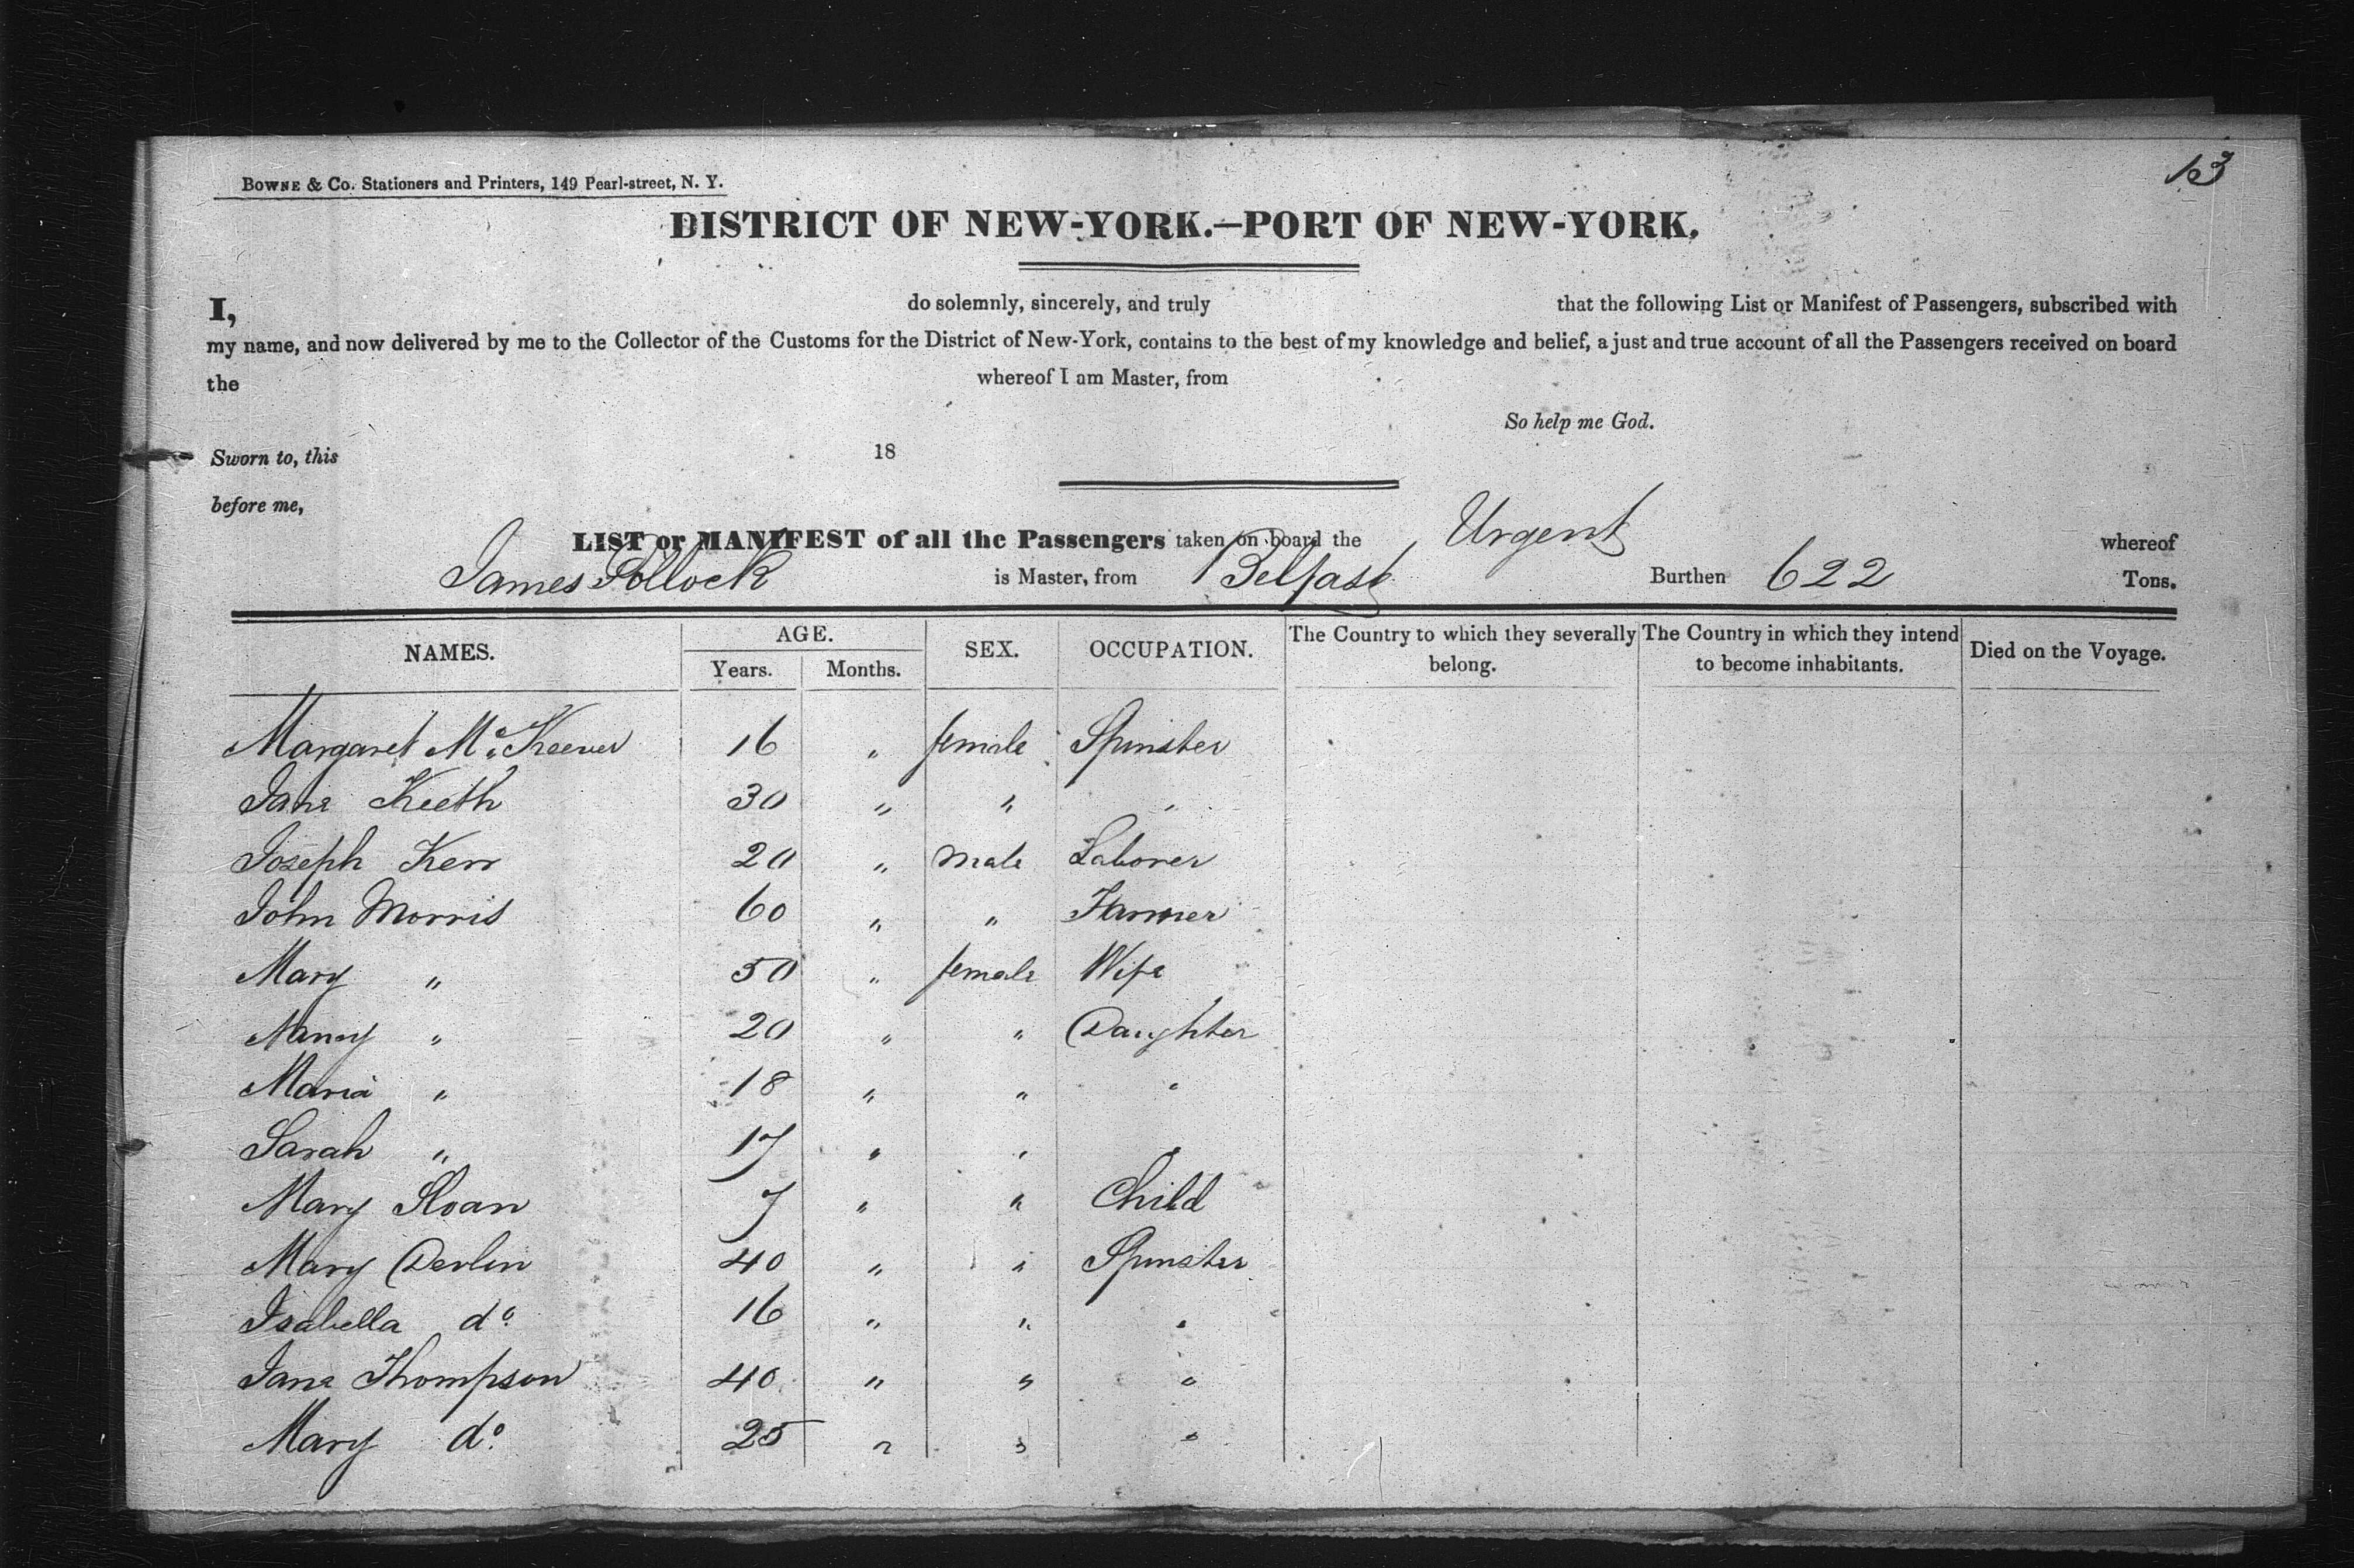 13
BOWNE & Co. Stationers and Printers, 149 Pearl-street, N. Y.
DISTRICT OF NEW-YORK.—PORT OF NEW-YORK.
I, do solemnly, sincerely, and truly that the following List or Manifest of Passengers, subscribed with
my name, and now delivered by me to the Collector of the Customs for the District of New-York, contains to the best of my knowledge and belief, a just and true account of all the Passengers received on board
the whereof I am Master, from
So help me God.
Sworn to, this 18
before me,
LIST or MANIFEST of all the Passengers taken on board the Urgent whereof
James Pollock is Master, from Belfast Burthen 622 Tons.
NAMES. AGE. SEX. OCCUPATION. The Country to which they severally belong. The Country in which they intend to become inhabitants. Died on the Voyage.
Years. Months.
Margaret McKeever 16 " female Spinster
Jane Keeth 30 " " "
Joseph Kerr 20 " male Laborer
John Morris 60 " " Farmer
Mary " 50 " female Wife
Nancy " 20 " " Daughter
Maria " 18 " " "
Sarah " 17 " " "
Mary Sloan 7 " " Child
Mary Devlin 40 " " Spinster
Isabella do 16 " " "
Jane Thompson 40 " " "
Mary do 25 " " "